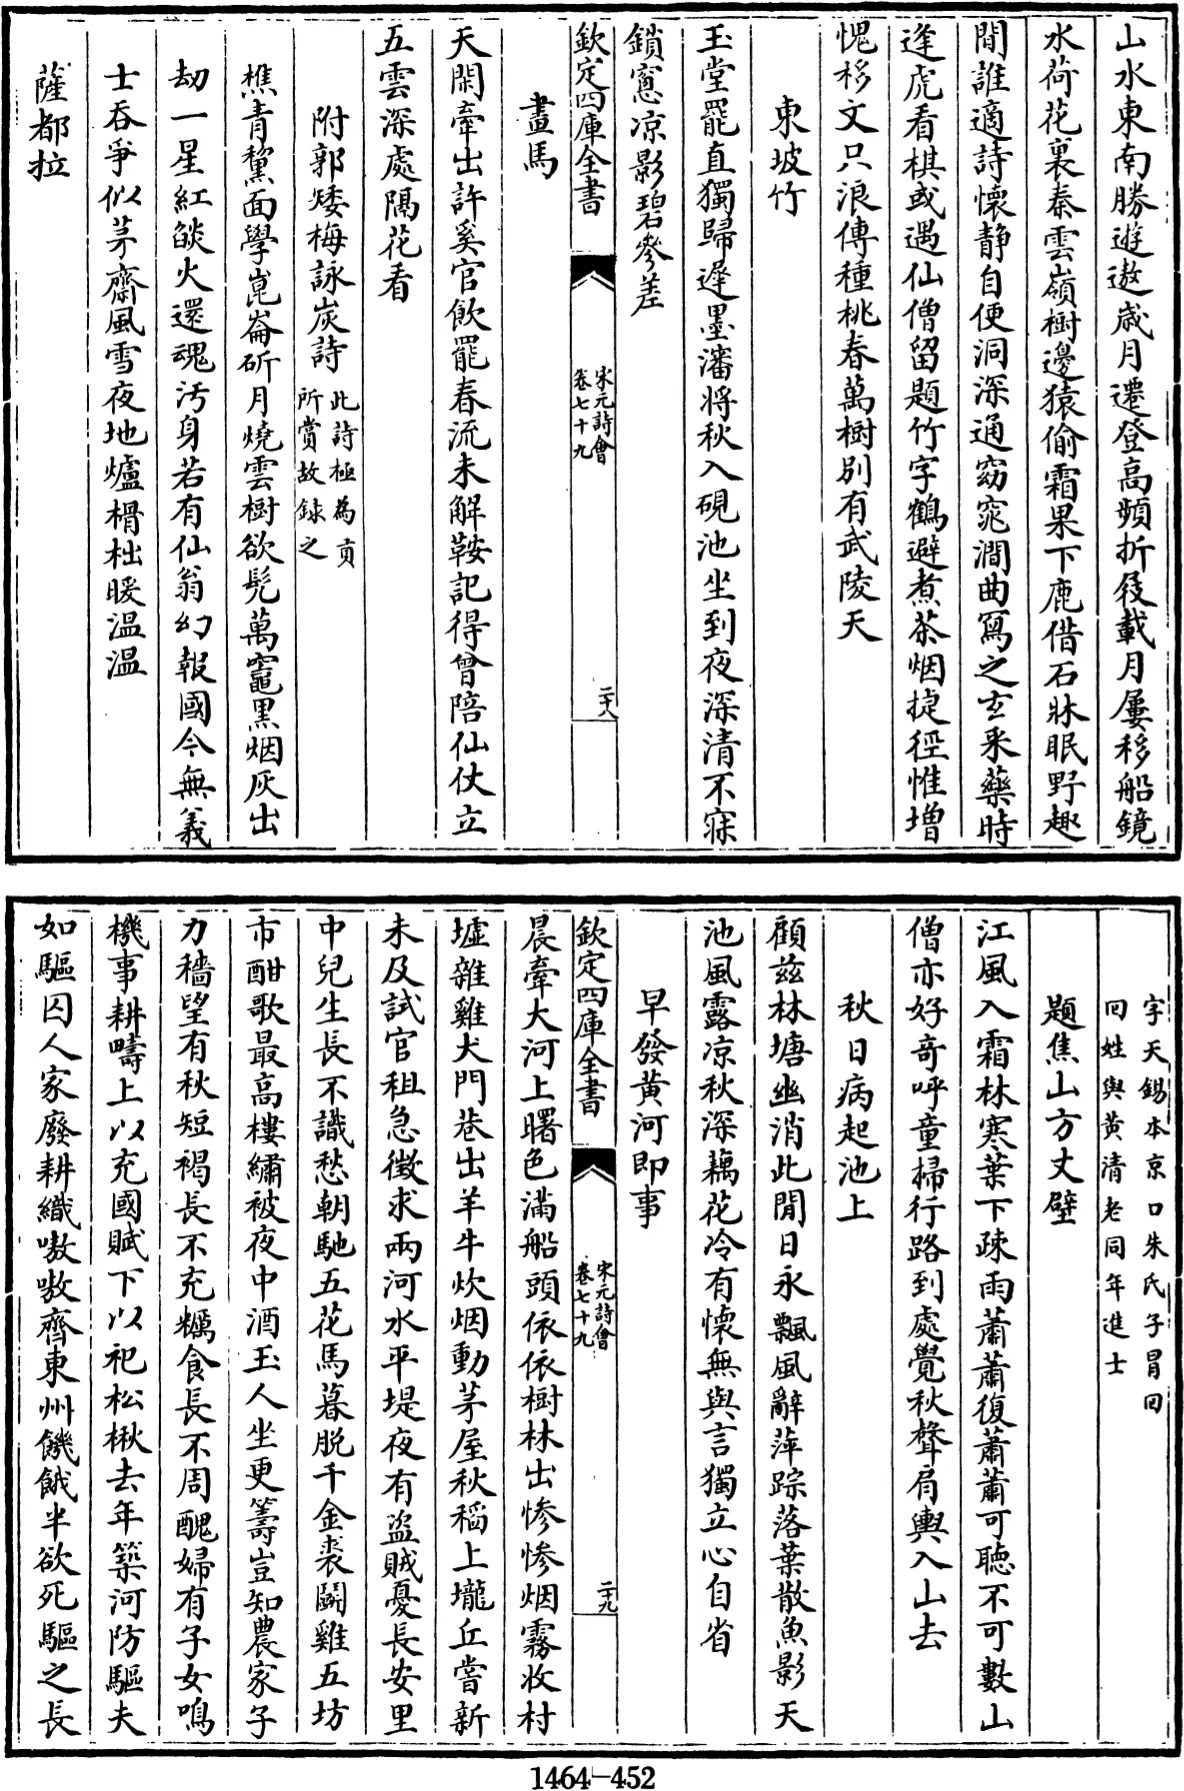 山水東南勝遊遨歲月遷登高頻折屐載月屢移船鏡
水荷花裏秦雲嶺樹邊猿偷霜果下鹿借石牀眠野趣
閒誰適詩懷静自便洞深通窈窕澗曲寫之玄采藥時
逢虎看棋或遇仙僧留題竹字鶴避煮茶烟捷徑惟增
愧移文只浪傳種桃春萬樹别有武陵天
東坡竹
玉堂罷直獨歸遲墨瀋將秋入硯池坐到夜深清不寐
鎖窻凉影碧參差
欽定四庫全書
宋元詩會
卷七十九
二十八
畫馬
天閑牽出許奚官飲罷春流未解鞍記得曾陪仙仗立
五雲深處隔花看
附郭矮梅詠炭詩
此詩極為貢
所賞故録之
樵青黧面學崑崙斫月燒雲樹欲髠萬竈黒烟灰出
劫一星紅燄火還魂汚身若有仙翁幻報國今無義
士吞爭似茅齋風雪夜地爐榾柮暖温温
薩都拉
字天錫本京口朱氏子冒回
回姓與黄清老同年進士
題焦山方丈壁
江風入霜林寒葉下疎雨蕭蕭復蕭蕭可聽不可數山
僧亦好奇呼童掃行路到處覺秋聲肩輿入山去
秋日病起池上
顧兹林塘幽消此閒日永飄風辭萍踪落葉散魚影天
池風露凉秋深藕花冷有懷無與言獨立心自省
早發黄河即事
欽定四庫全書
宋元詩會
卷七十九
二十九
晨牽大河上曙色滿船頭依依樹林出慘慘烟霧收村
墟雜雞犬門巷出羊牛炊烟動茅屋秋稻上壠丘嘗新
未及試官租急徴求兩河水平堤夜有盜賊憂長安里
中兒生長不識愁朝馳五花馬暮脱千金裘鬭雞五坊
市酣歌最高樓繡被夜中酒玉人坐更籌豈知農家子
力穡望有秋短褐長不充糲食長不周醜婦有子女鳴
機事耕疇上以充國賦下以祀松楸去年築河防驅夫
如驅囚人家廢耕織嗷嗷齊東州饑餓半欲死驅之長
1464-452